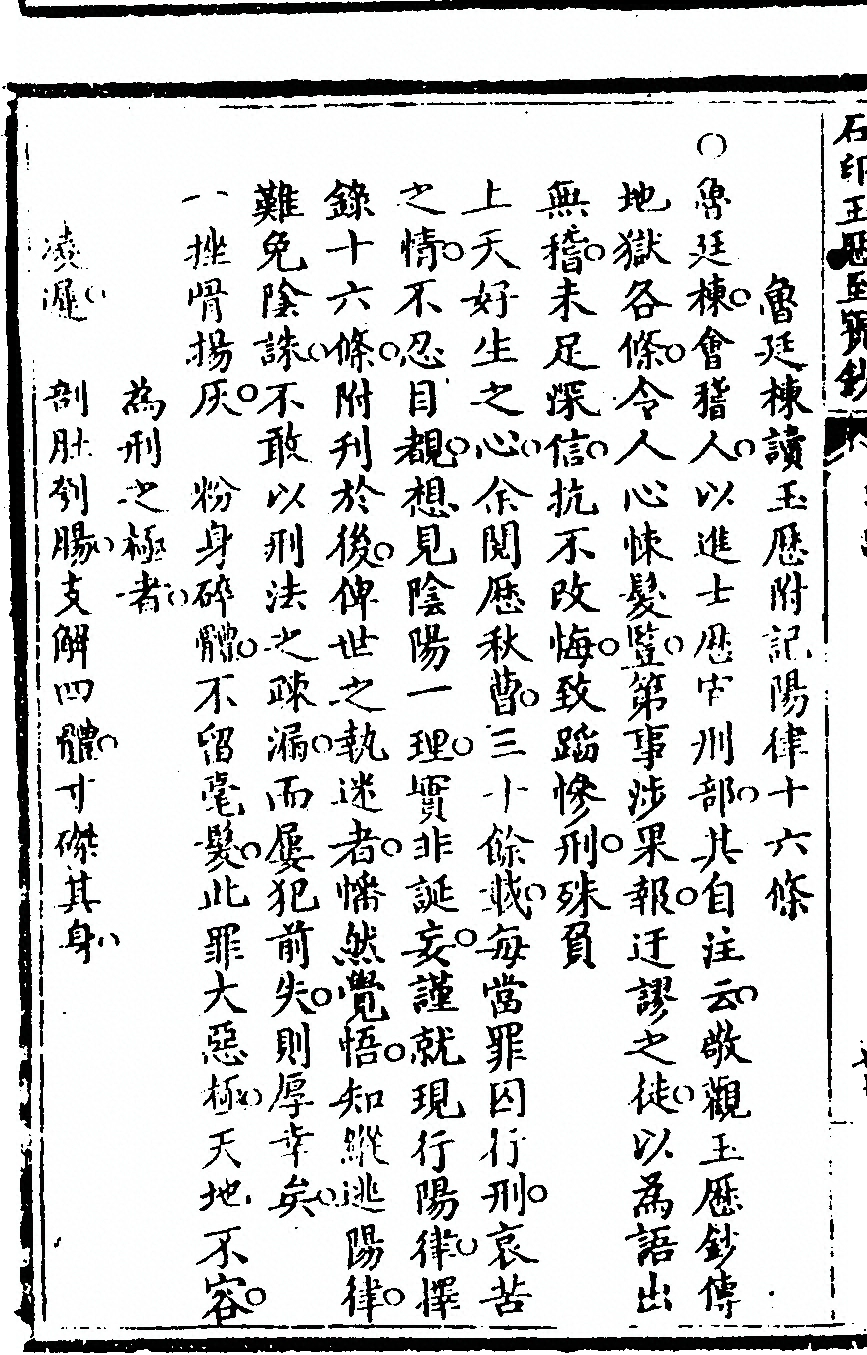 石印玉歷至寳鈔
魯廷棟讀玉歷附記陽律十六條
○魯廷棟○會稽人○以進士歷官刑部○其自注云○敬觀玉歷鈔傳
地獄各條○令人心悚髮豎○第事涉果報○迂謬之徒○以為語出
無稽○未足深信○抗不改悔○致蹈慘刑○殊負
上天好生之心○余閱歷秋曹○三十餘載○每當罪囚行刑○哀苦
之情○不忍目覩○想見陰陽一理○實非誕妄○謹就現行陽律○擇
錄十六條○附刋於後○俾世之執迷者○憣然覺悟○知縱逃陽律○
難免陰誅○不敢以刑法之疎漏○而屢犯前失○則厚幸矣○
一挫骨揚灰○　粉身碎體○不留毫髮○此罪大惡極○天地不容○
為刑之極者○
凌遲○　剖肚刳腸○支解四體○寸磔其身○